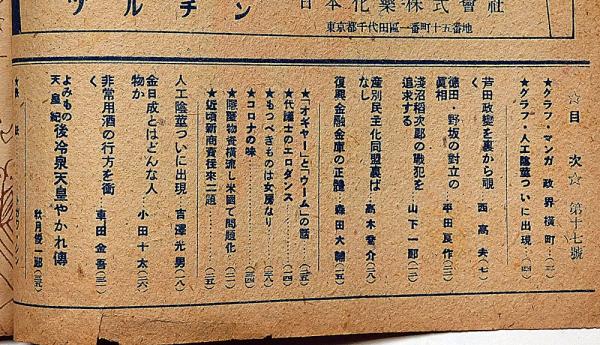 ツルチン
日本化薬・株式會社
東京都千代田區一番町十五番地
☆目次☆ 第十七號
★グラフ・マンガ 政界橫町…(三)
★グラフ・人工陰莖ついに出現…(四)
芦田政變を裏から覗く 西高夫(七)
德田・野坂の對立の眞相 平田良作(三)
淺沼稻次郎の戰犯を追求する 山下一郎(三)
産別民主化同盟裏ばなし 高木奮介(六)
復興金融金庫の正體 森田大輔(五)
★「オギヤー」と「ウーム」の話
★代議士のエロダンス…(四)
★もつべきものは女房なり
★コロナの味…(四)
★隱匿物資橫流し米國で問題化
★近頃新商賣往來二題…(五)
人工陰莖ついに出現 吉澤光男(八)
金日成とはどんな人物か 小田十太(六)
非常用酒の行方を衝く 車田金吾(三)
よみもの天皇紀 後冷泉天皇やかれ傳 秋月俊一郎
★表紙